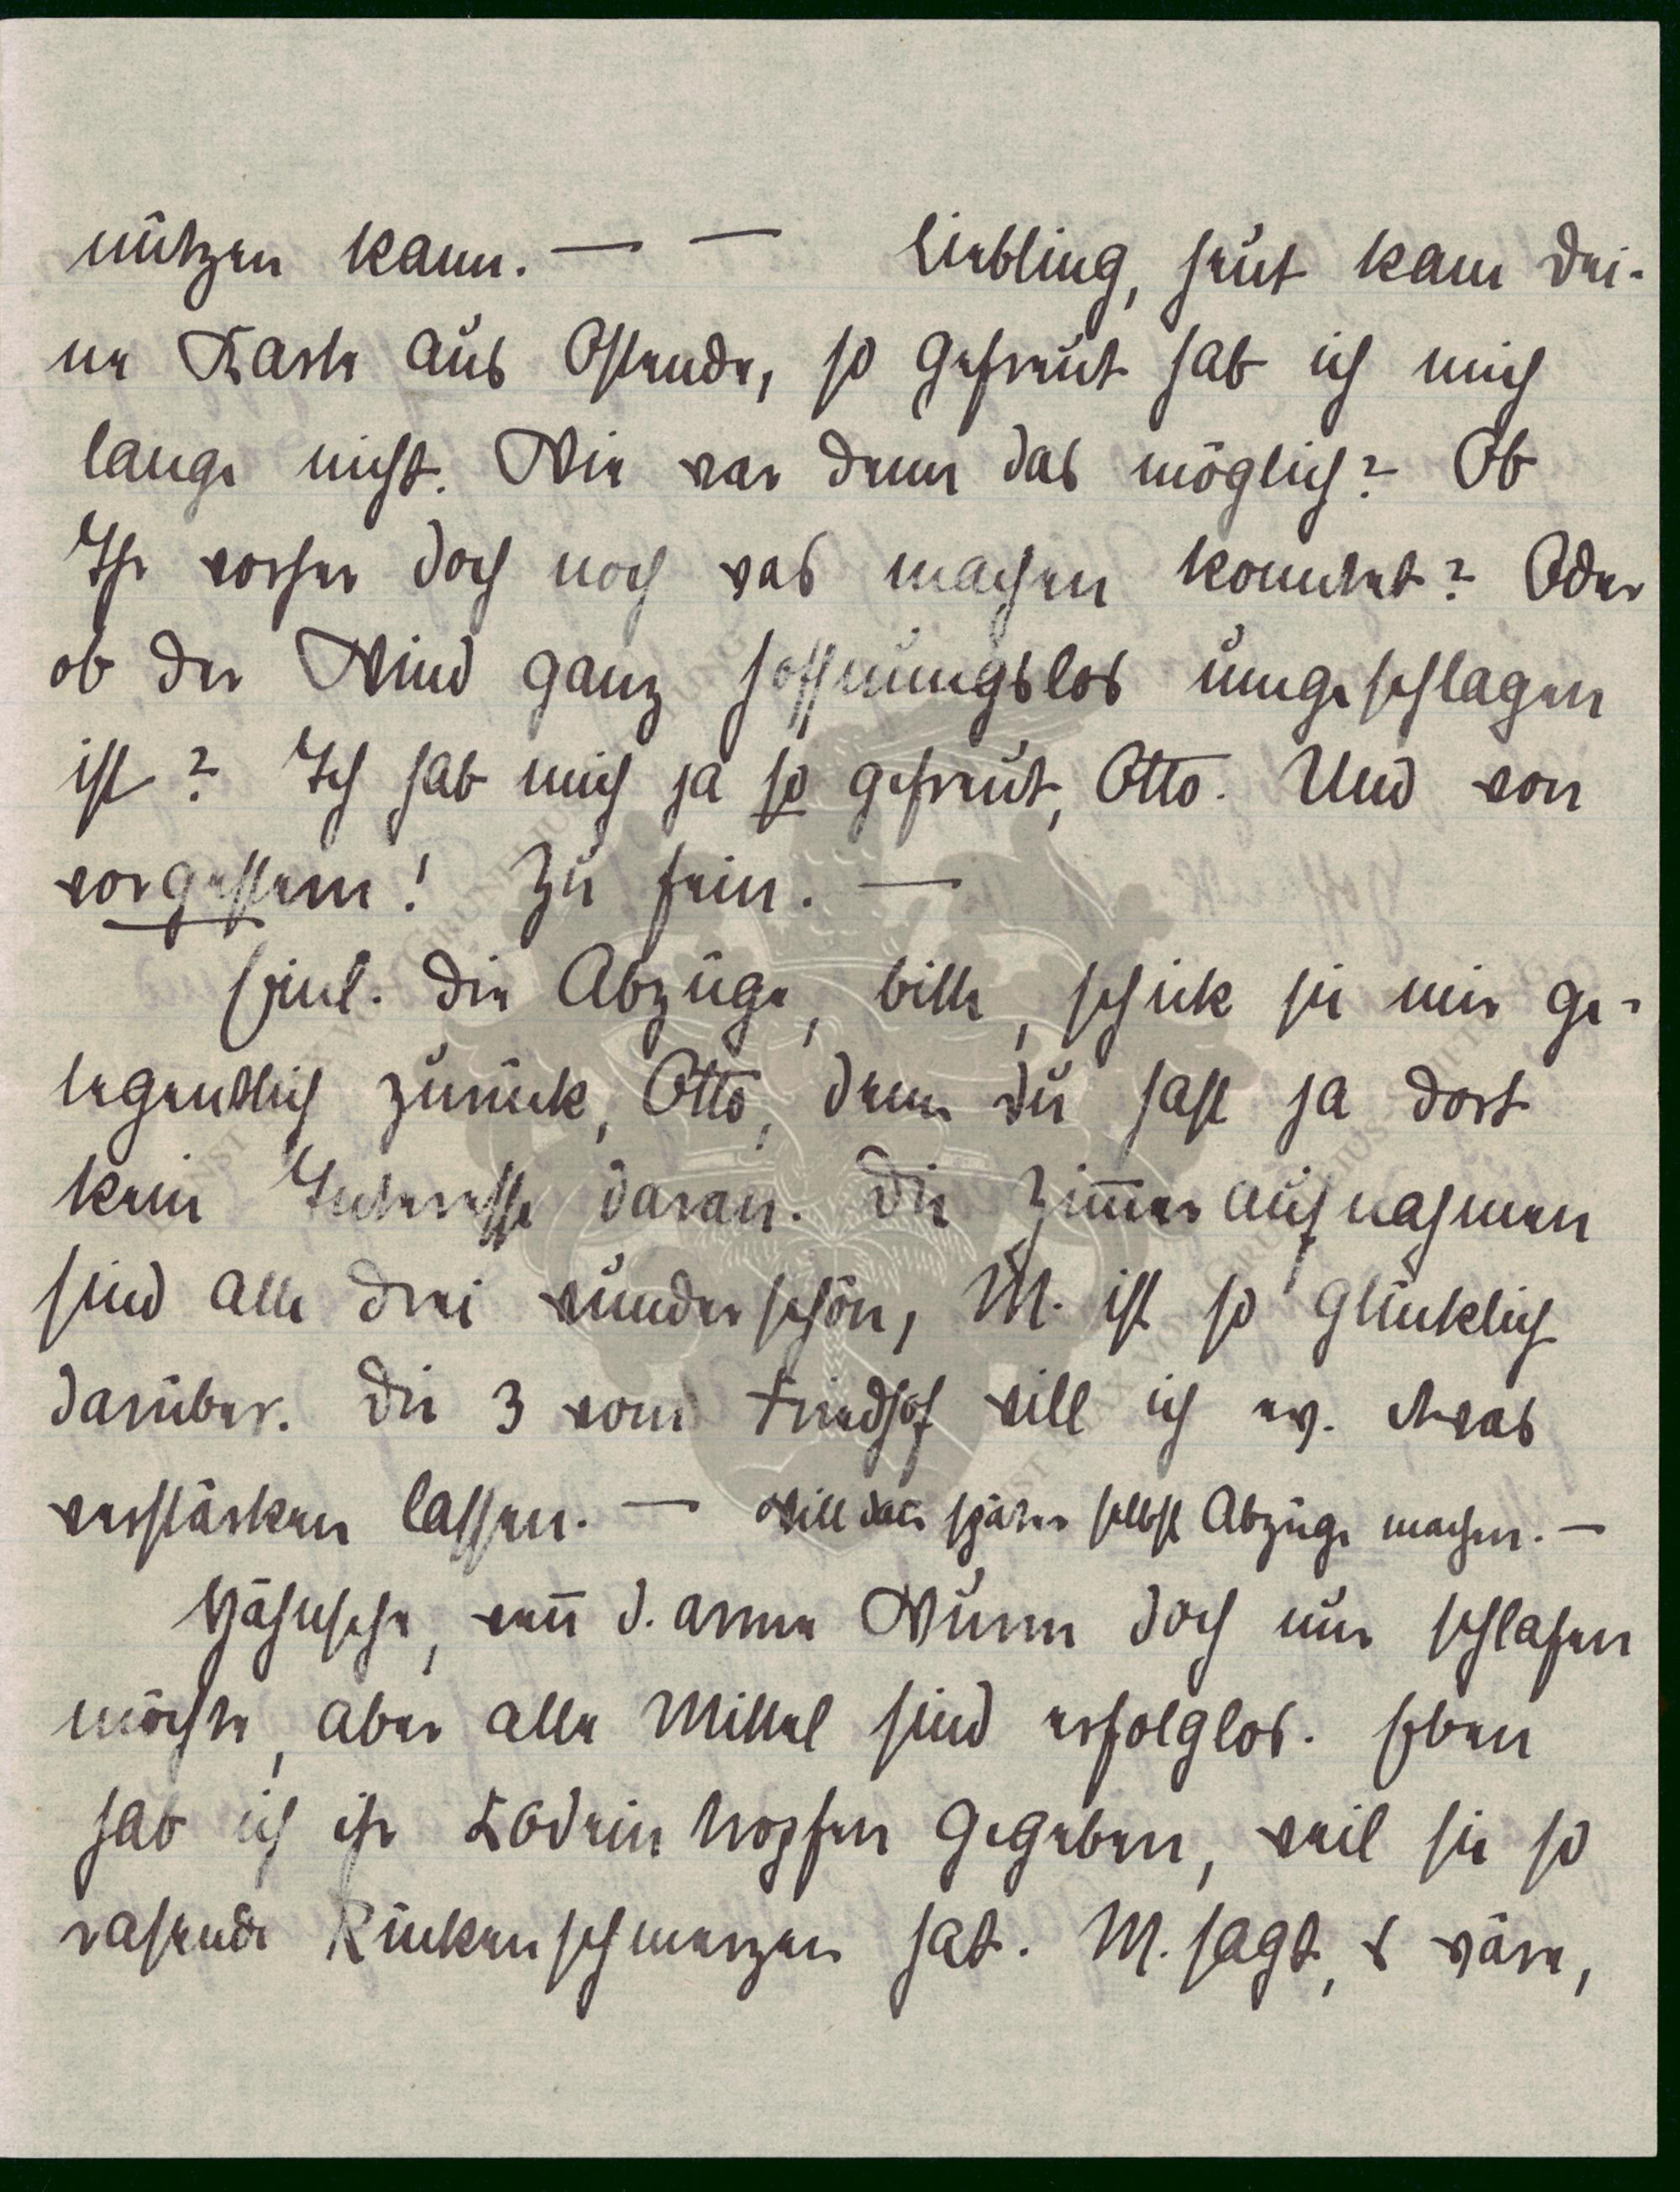 nützen kann. — — Liebling, heut kam Dei-
ne Karte aus Ostende, so gefreut hab ich mich
lange nicht. Wie war denn das möglich? Ob
Ihr vorher doch noch was machen konntet? Oder
ob der Wind ganz hoffnungslos umgeschlagen
ist? Ich hab mich ja so gefreut, Otto. Und von
vorgestern! Zu fein. —
Einl. die Abzüge, bitte, schick sie mir ge-
legentlich zurück, Otto, denn Du hast ja dort
kein Interesse daran. Die Zimmeraufnahmen
sind alle drei wunderschön, M. ist so glücklich
darüber. Die 3 vom Friedhof will ich ev. etwas
verstärken lassen. — Will dann später selbst Abzüge machen. —
, wenn d. arme Wurm doch nur schlafen
möchte, aber alle Mittel sind erfolglos. Eben
hab ich ihr Kodeintropfen gegeben, weil sie so
rasende Rückenschmerzen hat. M. sagt, s wäre,